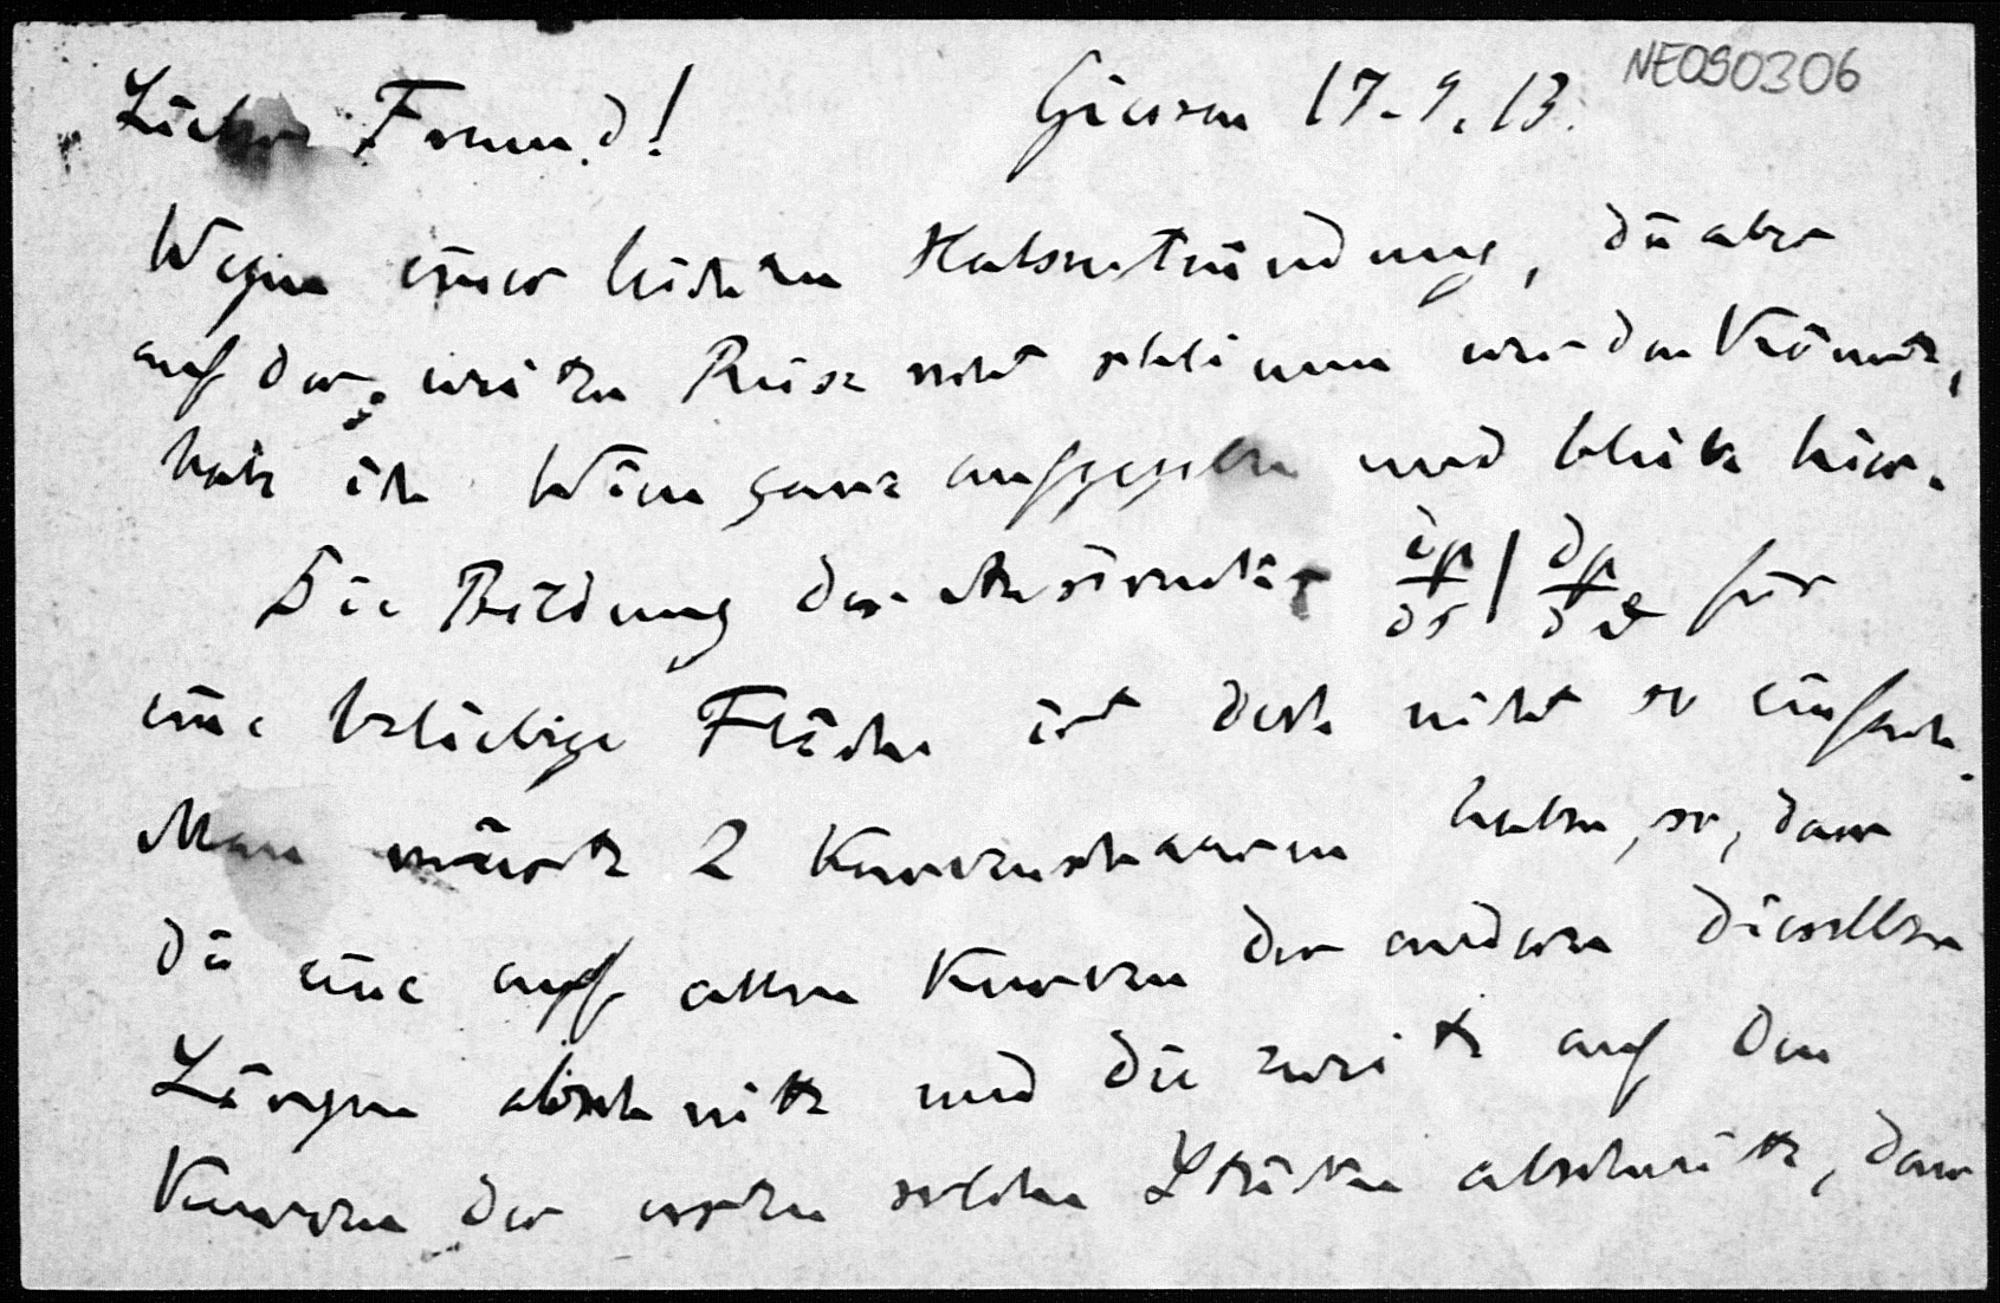 NE090306
Lieber Freund! Giessen 17.9.13.
Wegen einer leichten Halsentzündung, die aber
auf der weiten Reise recht schlimm werden könnte,
habe ich Wien ganz aufgegeben und bleibe hier.
Die Bildung der ∂p/∂s | ∂p/∂ϑ für
eine beliebige Fläche ist doch nicht so einfach.
Man müsste 2 Kurvenscharen haben, so, dass
die eine auf allen Kurven der andern dieselben
Längen abschnitte und die zweite auf den
Kurven der ersten solche Stücke abschnitte, dass